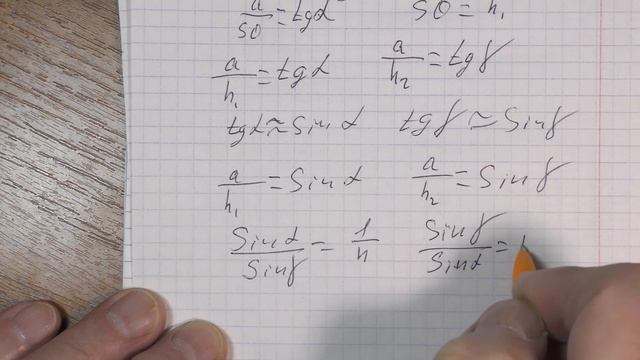 a/SO = tgα SO = h₁
a/h₁ = tgα a/h₂ = tgγ
tgα ≈ Sinα tgγ ≈ Sinγ
a/h₁ = Sinα a/h₂ = Sinγ
Sinα/Sinγ = 1/n Sinγ/Sinα =